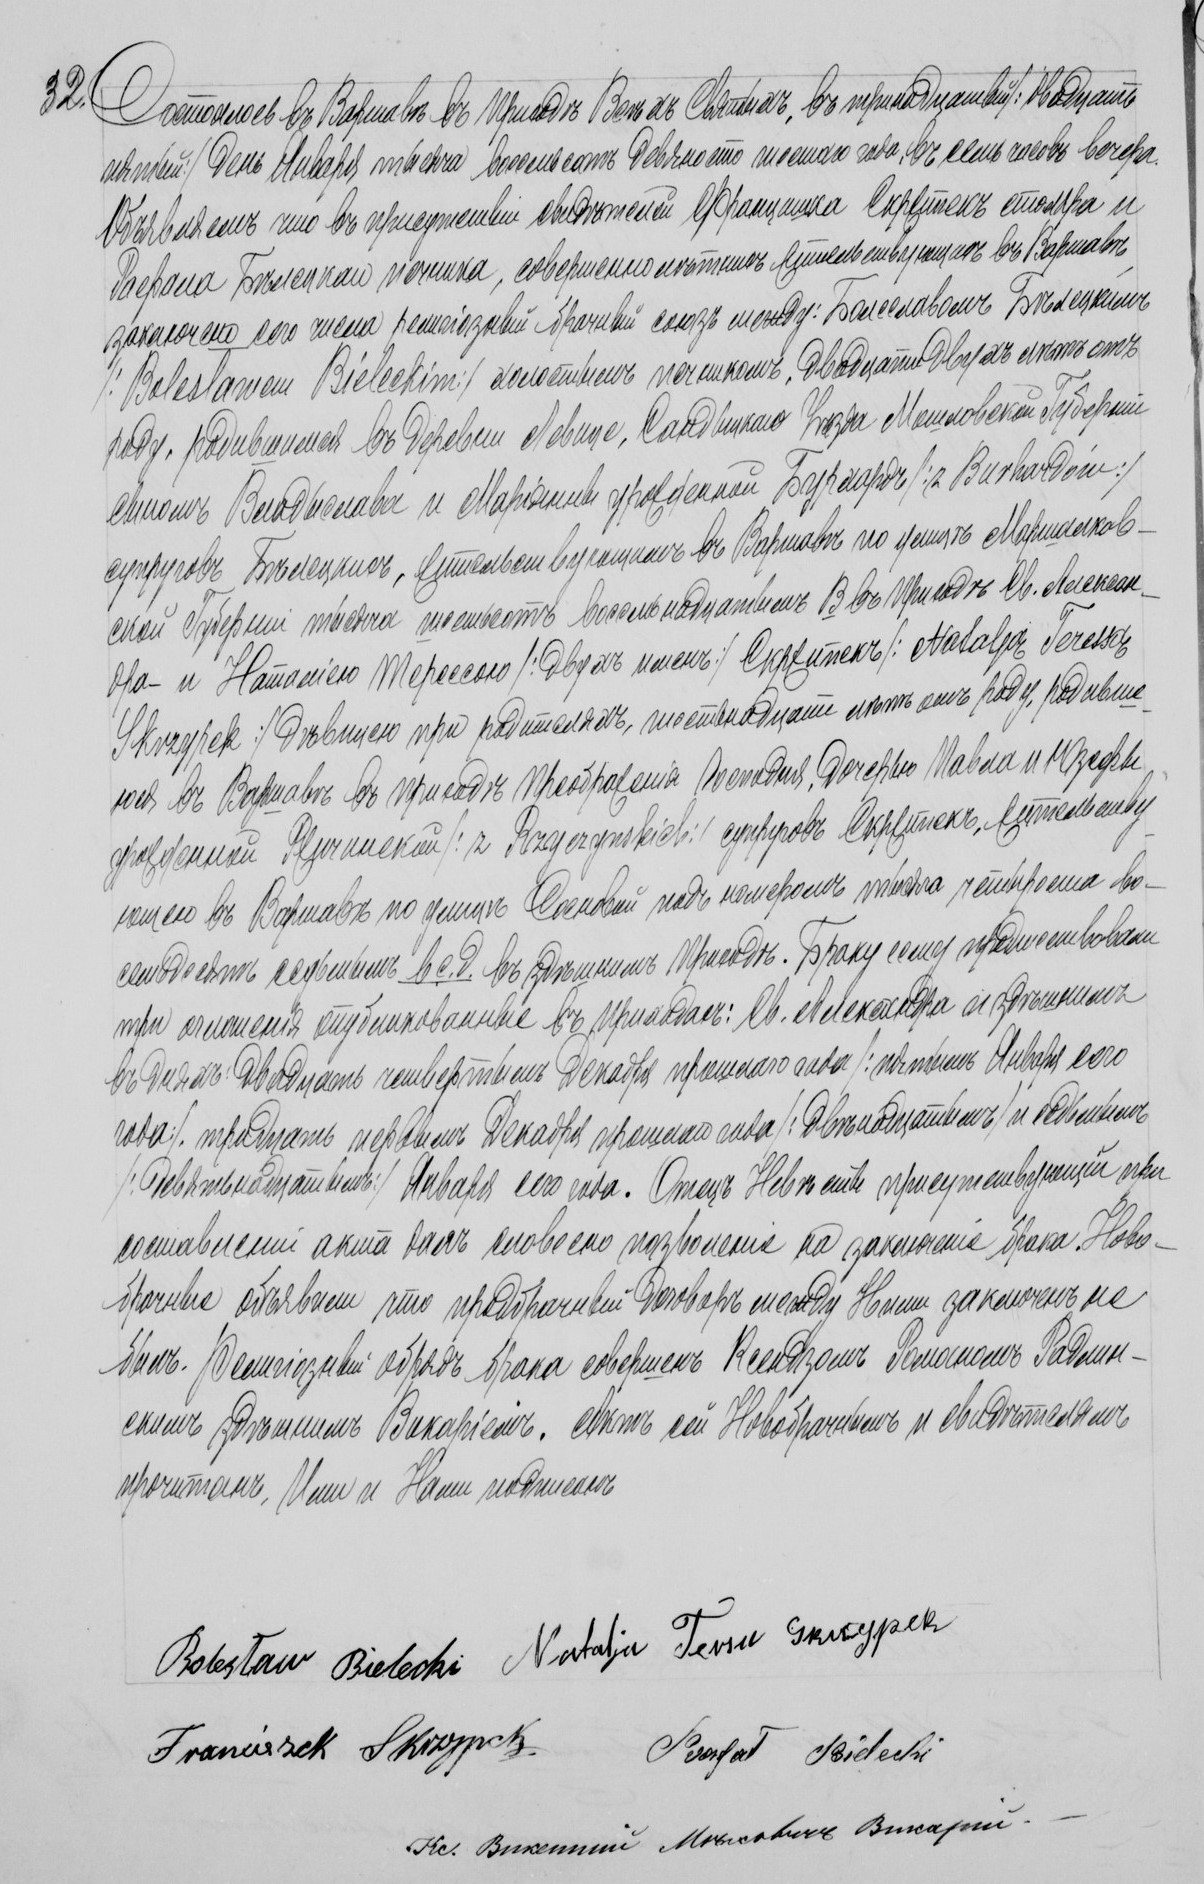 32. Состоялось въ Варшавѣ въ приходѣ Всѣхъ Святыхъ, въ тринадцатый /: двадцать
пятый:/ день Января тысяча восемьсотъ девяносто шестаго года, въ семь часовъ вечера.
Объявляемъ что въ присутствіи свидѣтелей Францишка Скржипекъ столяра и
Рафала Бѣлецкаго печника, совершеннолѣтнихъ жительствующихъ въ Варшавѣ,
заключено сего числа религіозный брачный союзъ между: Болеславомъ Бѣлецкимъ
/: Bolesławem Bieleckim:/ холостымъ печникомъ, двадцати двухъ лѣтъ отъ
роду, родившимся въ деревни Левице, уѣзда Губерніи
сыномъ Владыслава и Маріанны урожденной Бурхардъ /: z Burhardów:/
супруговъ Бѣлецкихъ, жительствующимъ въ Варшавѣ по улицѣ Маршалков-
ской Губерніи тысяча шестьсотъ восемьнадцатымъ В въ приходѣ Св. Александ-
ра - и Наталіею Терессою /: двухъ именъ:/ Скржипекъ /: Natalją Teressą
Skrzypek :/ дѣвицею при родителяхъ, шестьнадцати лѣтъ отъ роду, родивше-
юся въ Варшавѣ въ приходѣ Преображенія Господня, дочерью Павла и Юзефы
урожденной Ржечинской /: z Rzyczyńskich:/ супруговъ Скржипекъ, жительству-
ющею въ Варшавѣ по улицѣ Сосновой подъ номеромъ тысяча четыреста во-
семьдесятъ седьмымъ в.с.д. въ здѣшнемъ приходѣ. Браку сему предшествовали
три оглашенія опубликованные въ приходахъ: Св. Александра и здѣшнемъ
въ дняхъ: двадцать четвертымъ Декабря прошлаго года /: пятымъ Января сего
года:/. тридцать первымъ Декабря прошлаго года /: двѣнадцатымъ / и седьмымъ
/: девятьнадцатымъ:/ Января сего года. Отецъ Невѣсты присутствующій при
составленіи акта далъ словесно позволеніе на заключеніе брака. Ново-
брачные объявили что предбрачный договоръ между Ними заключенъ не
былъ. Религіозный обрядъ брака совершенъ Ксендзомъ Романомъ Радлин-
скимъ здѣшнимъ Викаріемъ. Актъ сей Новобрачнымъ и свидѣтелямъ
прочитанъ, Ими и Нами подписанъ
Bolesław Bielecki Natalja Tersa Skrzypek
Franciszek Skrzypek Rafał Bielecki
Кс. Викентий Викарий.